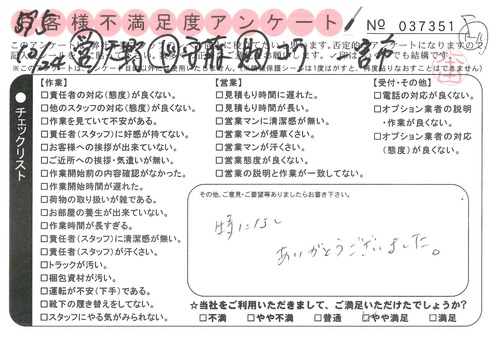 お客様不満足度アンケート No 037351
チェックリスト
【作業】
□責任者の対応(態度)が良くない。
□他のスタッフの対応(態度)が良くない。
□作業を見ていて不安がある。
□責任者(スタッフ)に好感が持てない。
□お客様への挨拶が出来ていない。
□ご近所への挨拶・気遣いが無い。
□作業開始前の内容確認がなかった。
□作業開始時間が遅れた。
□荷物の取り扱いが雑である。
□お部屋の養生が出来ていない。
□作業時間が長すぎる。
□責任者(スタッフ)に清潔感が無い。
□責任者(スタッフ)が汗くさい。
□トラックが汚い。
□梱包資材が汚い。
□運転が不安(下手)である。
□靴下の履き替えをしてない。
□スタッフにやる気がみられない。
【営業】
□見積もり時間に遅れた。
□見積もり時間が長い。
□営業マンに清潔感が無い。
□営業マンが煙草くさい。
□営業マンが汗くさい。
□営業態度が良くない。
□営業の説明と作業が一致してない。
【受付・その他】
□電話の対応が良くない。
□オプション業者の説明
・作業が良くない。
□オプション業者の対応
(態度)が良くない。
その他、ご意見・ご要望等ありましたらお書き下さい。
特になし
ありがとうございました。
☆当社をご利用いただきまして、ご満足いただけたでしょうか?
□不満 □やや不満 □普通 □やや満足 □満足